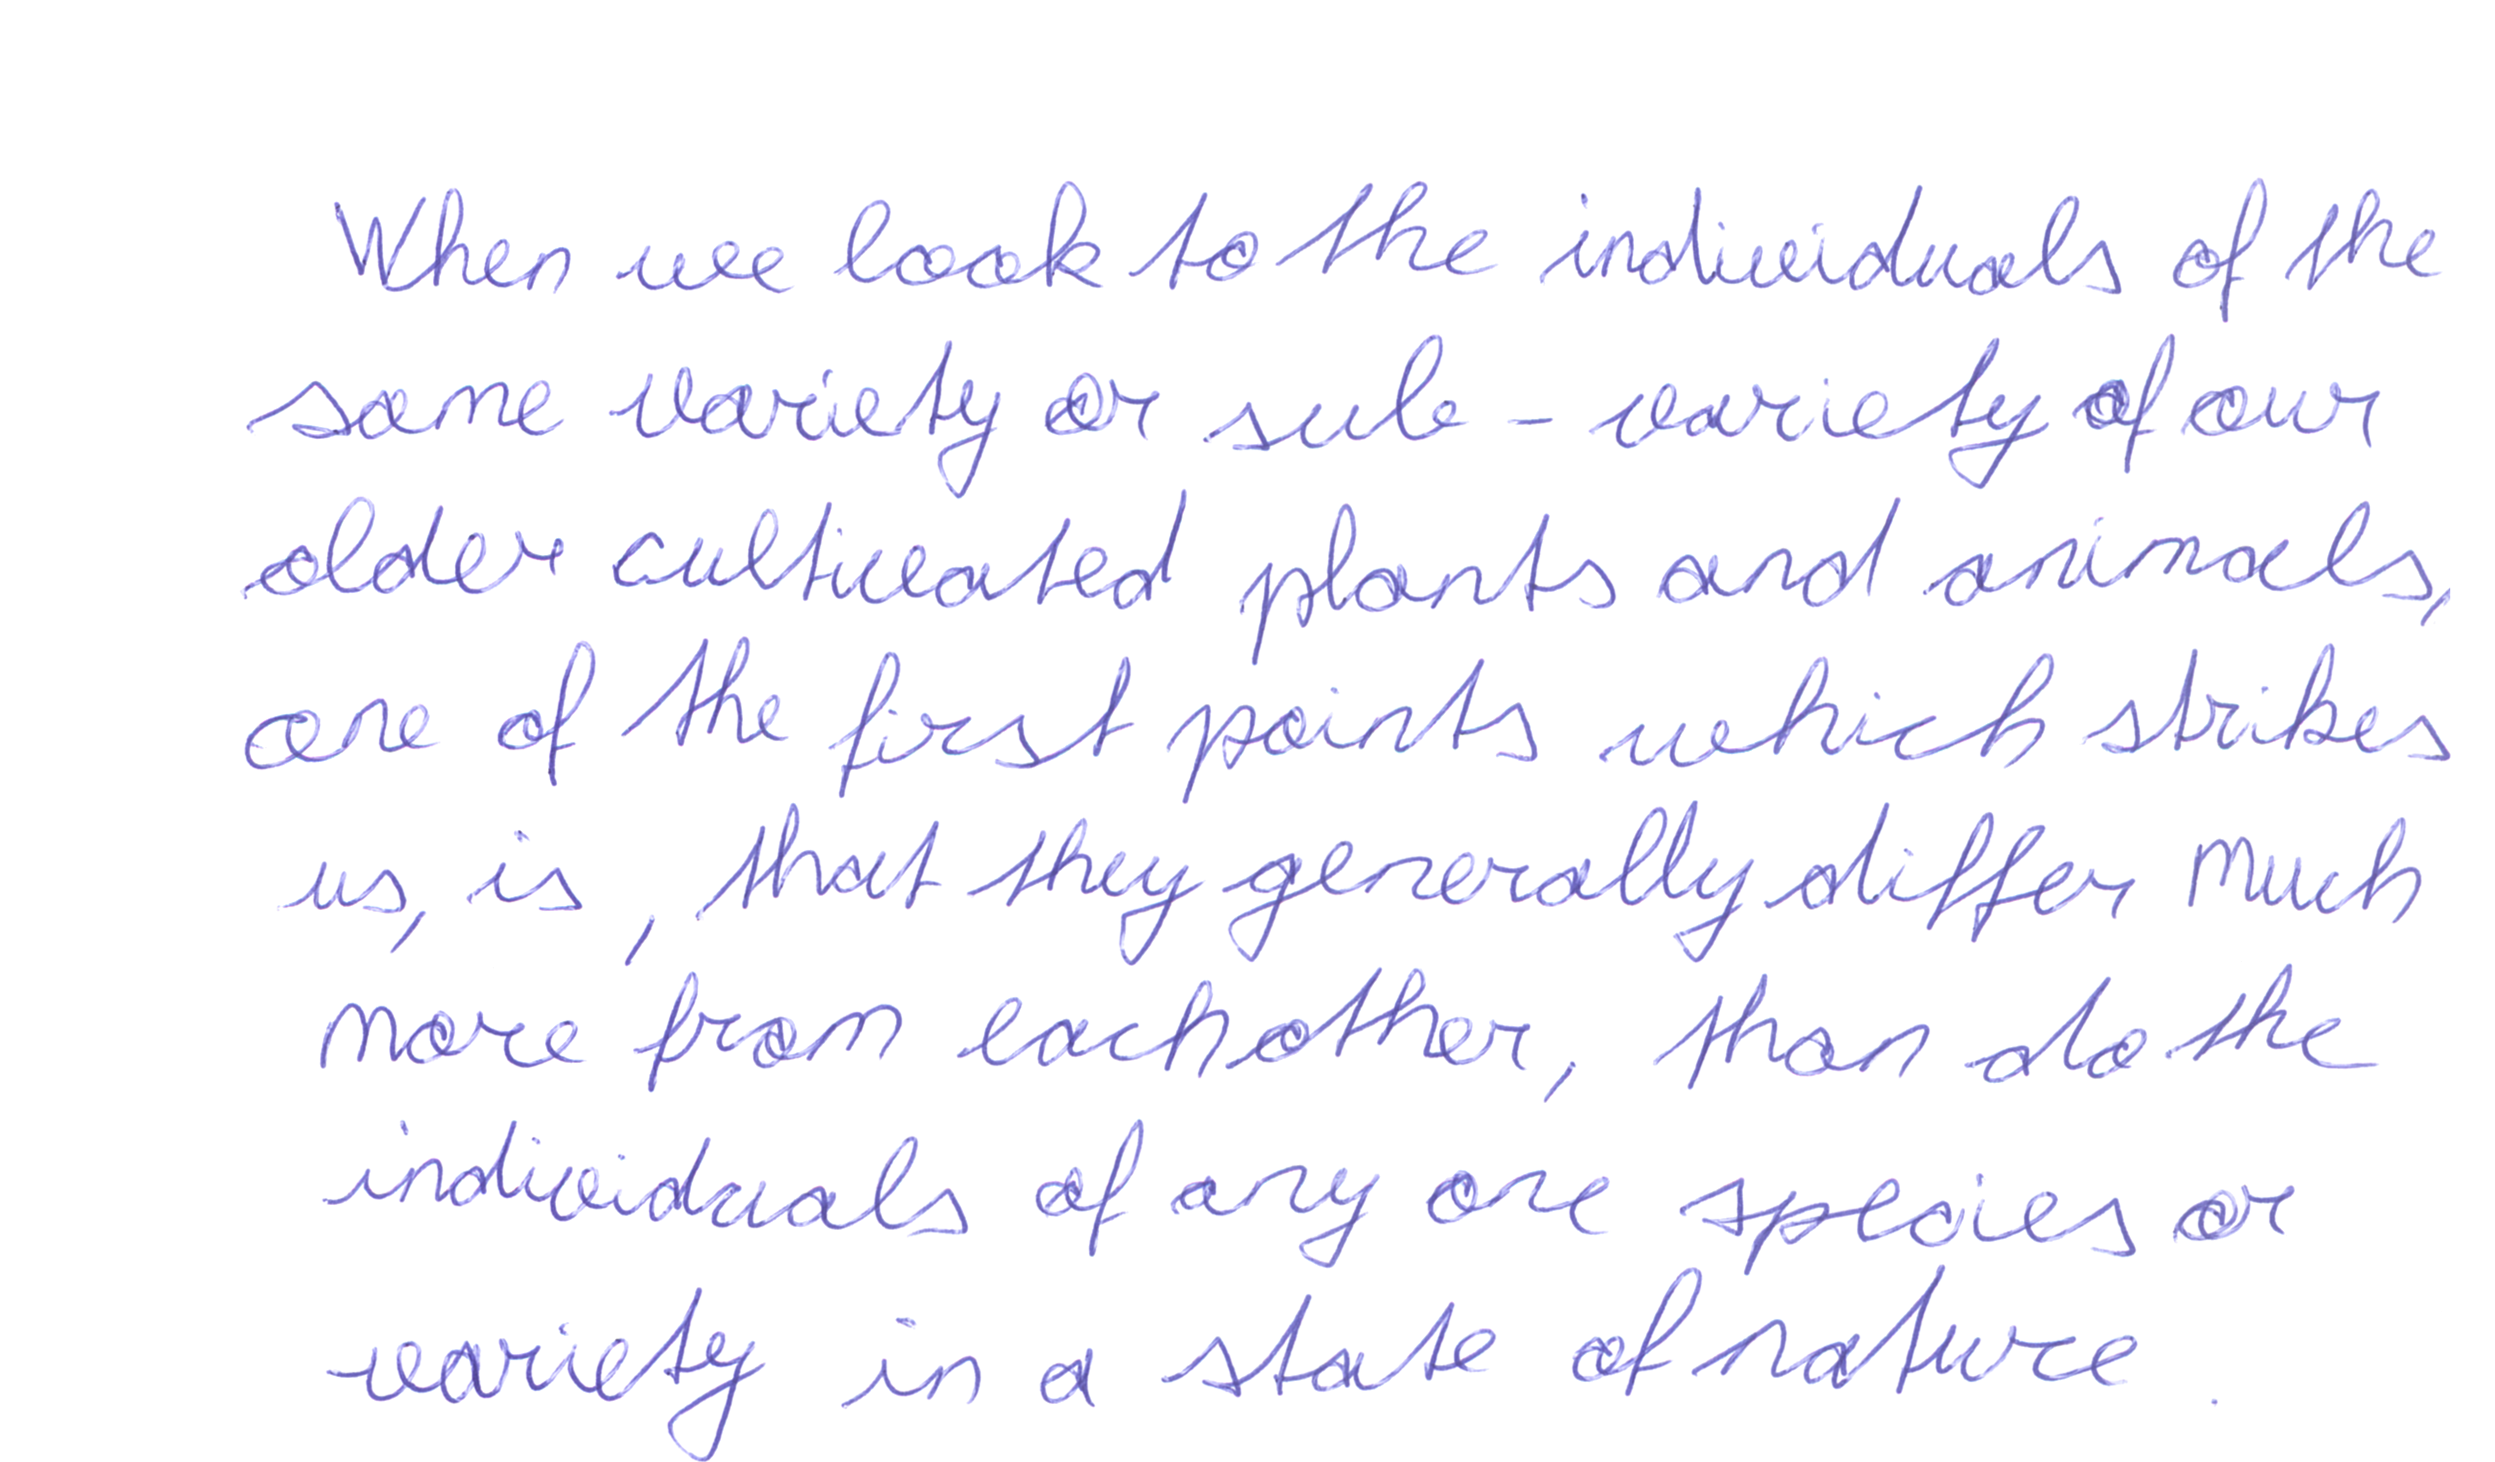 When we look to the individuals of the
same variety or sub-variety of our
older cultivated plants and animals,
one of the first points which strikes
us, is, that they generally differ much
more from each other, than do the
individuals of any one species or
variety in a state of nature.